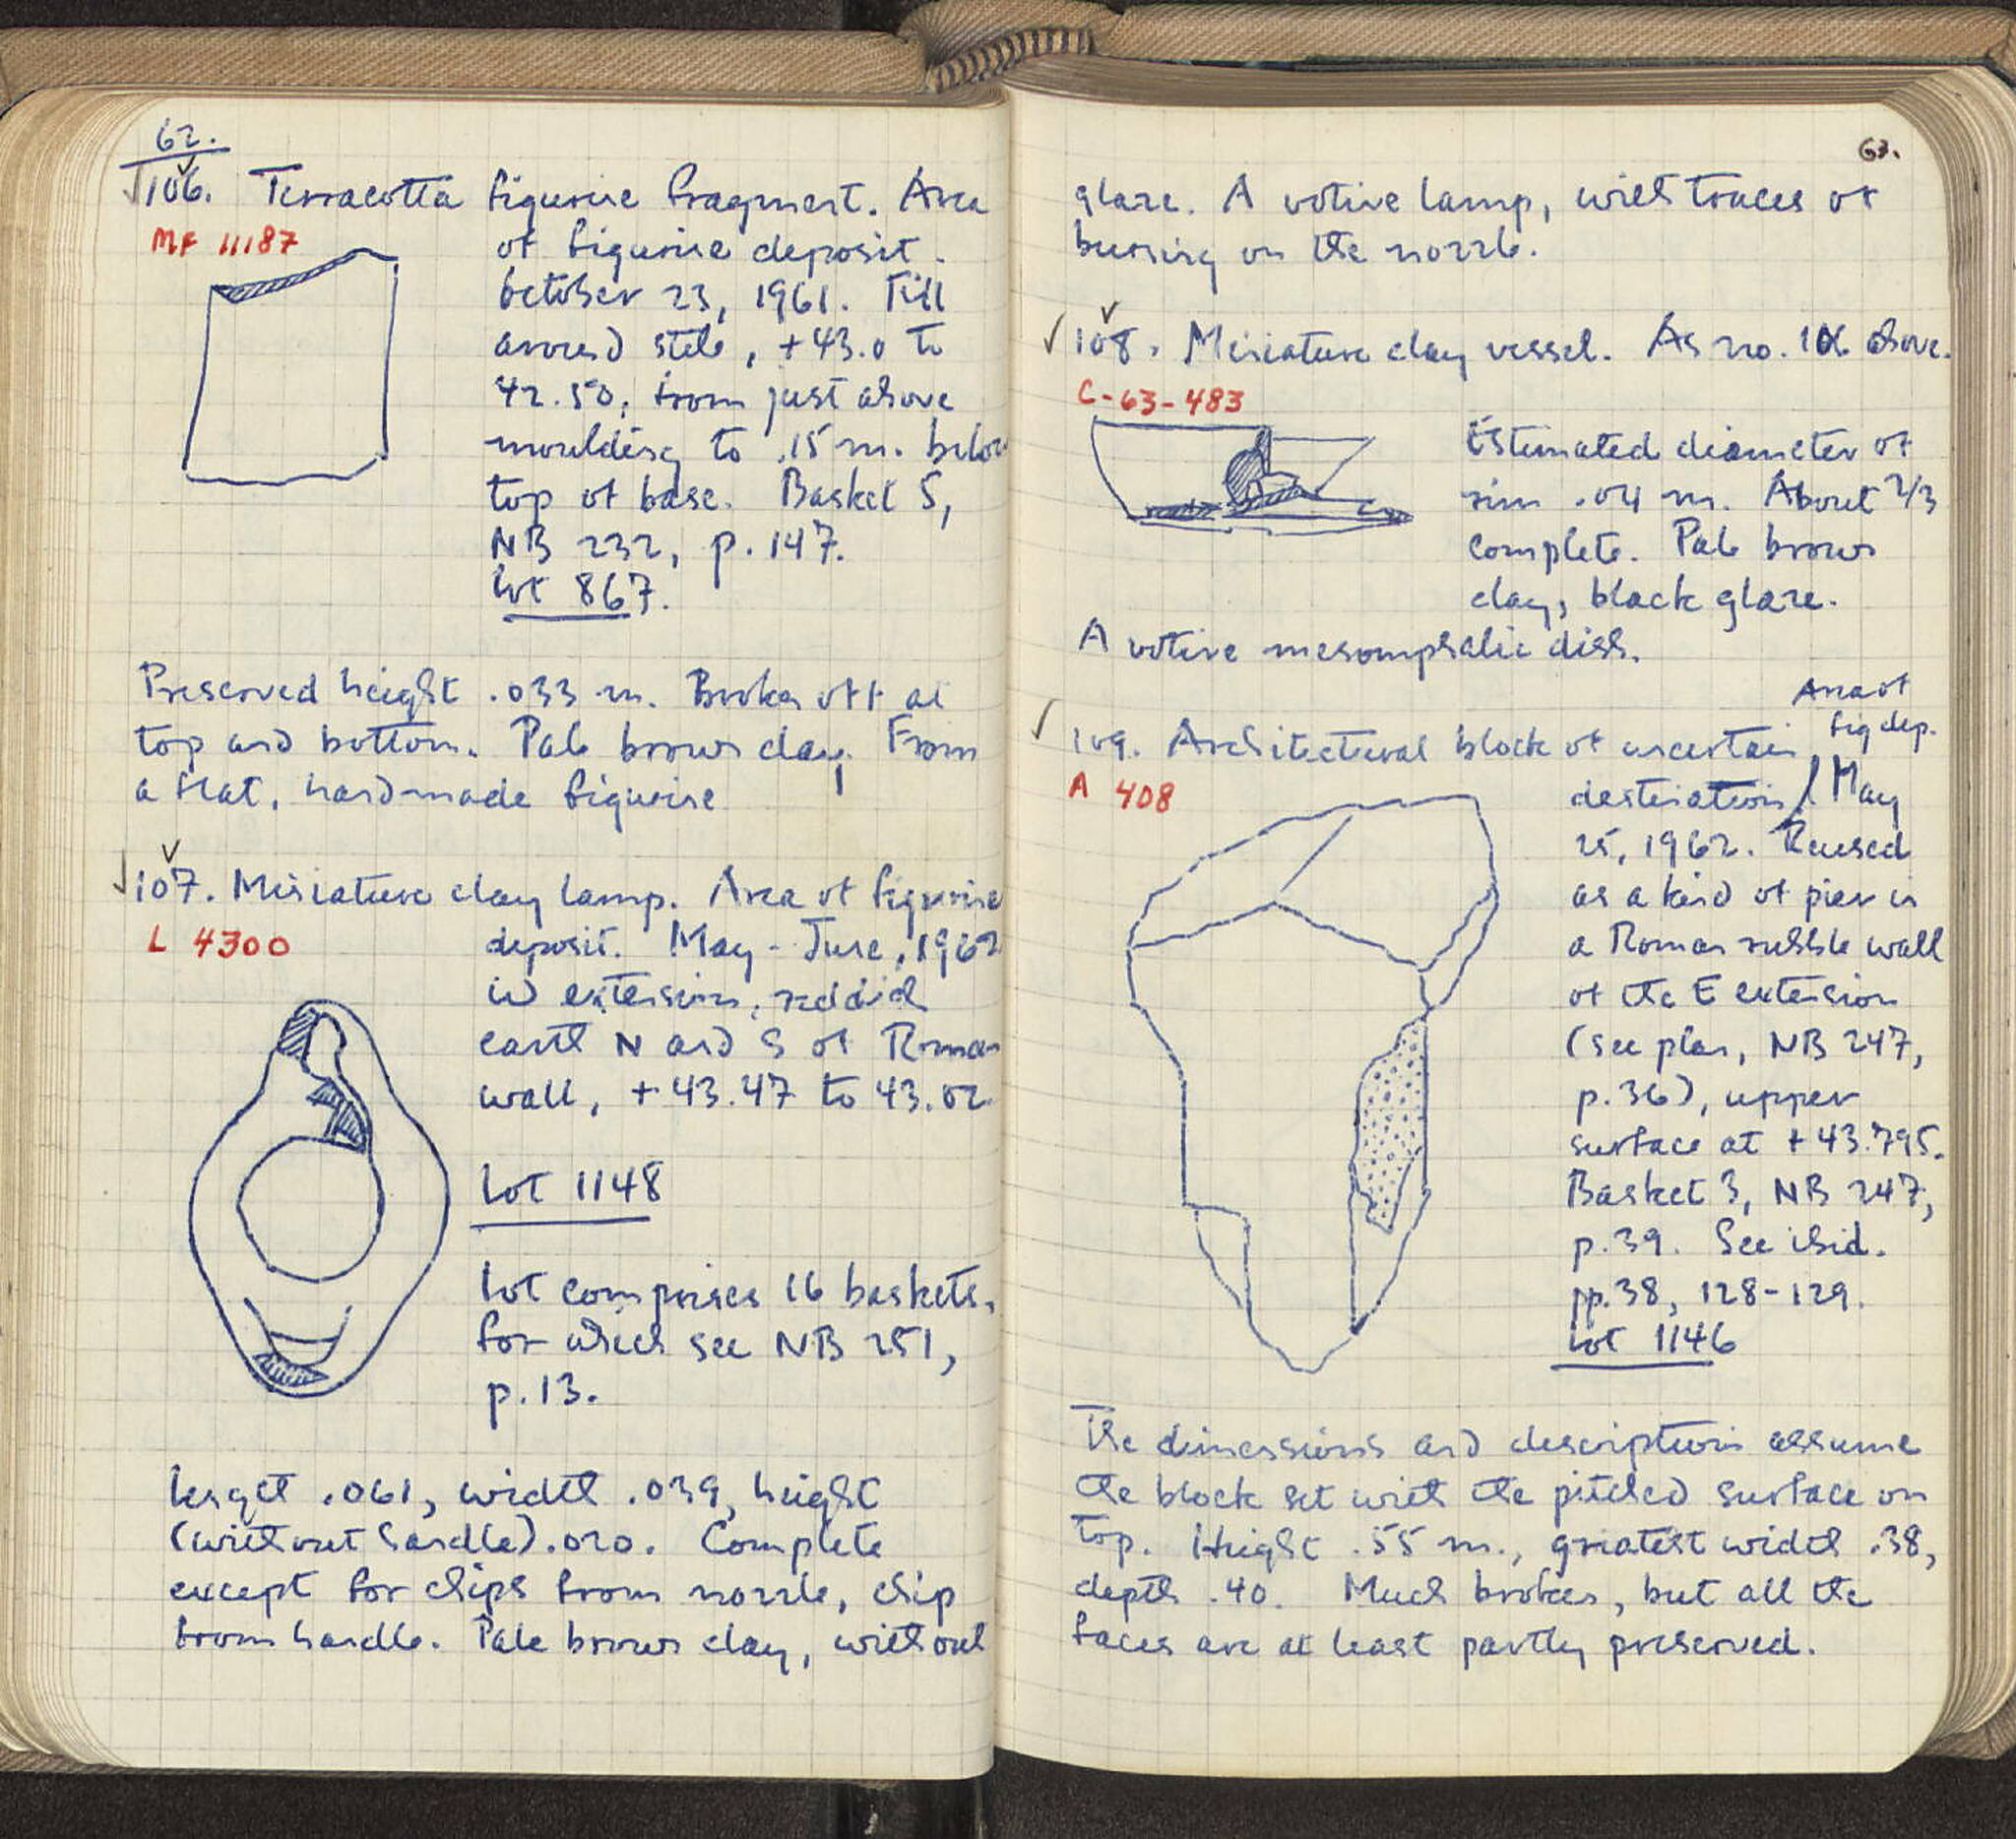 62.
106. Terracotta figurine fragment. Area
MF 11187
of figurine deposit.
October 23, 1961. Fill
around stele, +43.0 to
42.50, from just above
moulding to .15 m. below
top of base. Basket 5,
NB 232, p. 147.
Lot 867.
Preserved height .033 m. Broken off at
top and bottom. Pale brown clay. From
a flat, handmade figurine
107. Miniature clay lamp. Area of figurine
L 4300
deposit. May - June, 1962
in extension, reddish
earth N and S of Roman
wall, +43.47 to 43.02
Lot 1148
Lot comprises 16 baskets,
for which see NB 251,
p. 13.
Length .061, width .039, height
(without handle) .020. Complete
except for chips from nozzle, chip
from handle. Pale brown clay, without
63.
glaze. A votive lamp, with traces of
burning on the nozzle.
108. Miniature clay vessel. As no. 106 above.
C-63-483
Estimated diameter of
rim .04 m. About 2/3
complete. Pale brown
clay, black glaze.
A votive mesomphalic dish.
Area of
fig dep.
109. Architectural block of uncertain
A 408
destination / May
25, 1962. Reused
as a kind of pier in
a Roman rubble wall
of the E extension
(see plan, NB 247,
p. 36), upper
surface at +43.795.
Basket 3, NB 247,
p. 39. See ibid.
pp. 38, 128-129.
Lot 1146
The dimensions and description assume
the block set with the pitched surface on
top. Height .55 m., greatest width .38,
depth .40. Much broken, but all the
faces are at least partly preserved.